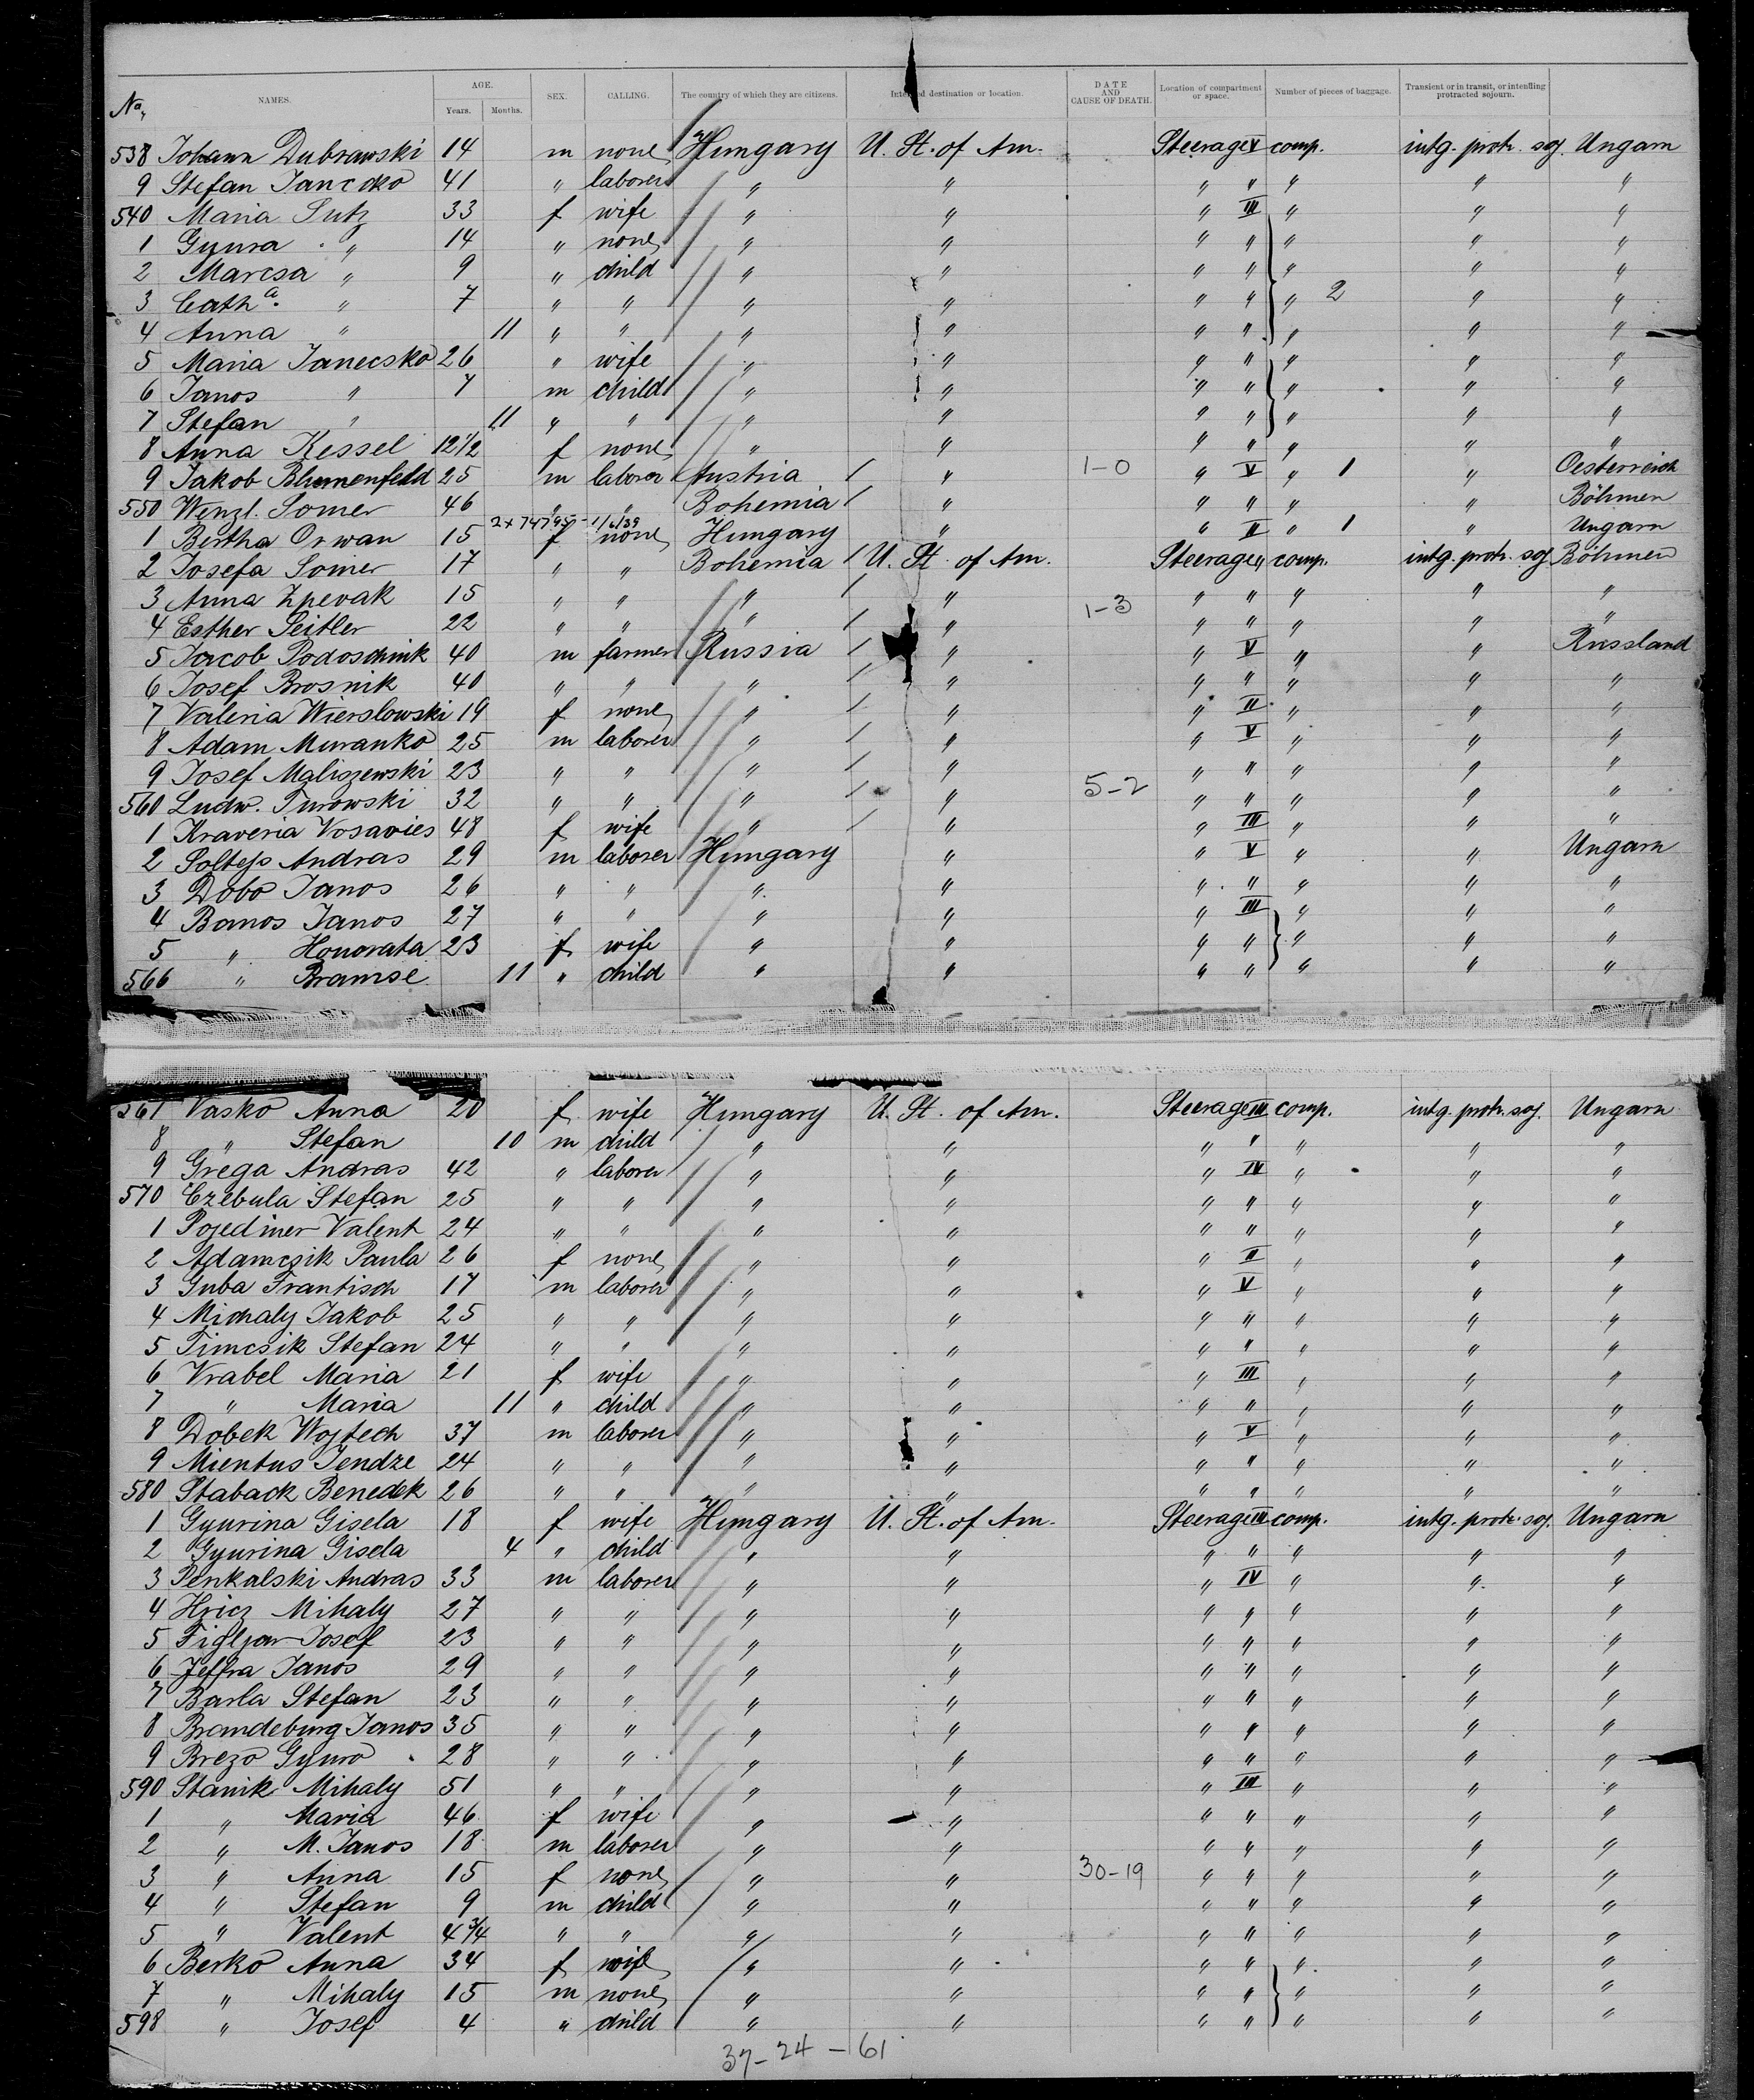 No. NAMES. AGE. Years. Months. SEX. CALLING. The country of which they are citizens. Intended destination or location. DATE AND CAUSE OF DEATH. Location of compartment or space. Number of pieces of baggage. Transient or in transit, or intending protracted sojourn.
538 Johann Dubrawski 14 m none Hungary U. St. of Am. Steerage V comp. intg. protr. soj. Ungarn
9 Stefan Janccko 41 " laborer " " " " " " "
540 Maria Lutz 33 f wife " " " III " " "
1 Gyura " 14 " none " " " " " " "
2 Marcsa " 9 " child " " " " " " "
3 Cath a. " 7 " " " " " " " 2 " "
4 Anna " 11 " " " " " " " " "
5 Maria Janecsko 26 " wife " " " " " " "
6 Janos " 7 m child " " " " " " "
7 Stefan " 11 " " " " " " " " "
8 Anna Kessel 12 1/2 f none " " " " " " "
9 Jakob Blumenfeld 25 m laborer Austria " 1-0 " V " 1 " Oesterreich
550 Wenzl. Somer 46 " " Bohemia " " " " " Böhmen
2x74795 - 1/6/39
1 Bertha Orwan 15 f none Hungary " " II " 1 " Ungarn
2 Josefa Somer 17 " " Bohemia U. St. of Am. Steerage " comp. intg. protr. soj. Böhmen
3 Anna Zpevak 15 " " " " 1-3 " " " " "
4 Esther Peitler 22 " " " " " " " " "
5 Jacob Podoschink 40 m farmer Russia " " V " " Russland
6 Josef Brosnik 40 " " " " " " " " "
7 Valeria Wierslowski 19 f none " " " II " " "
8 Adam Muranko 25 m laborer " " " V " " "
9 Josef Maliszewski 23 " " " " 5-2 " " " " "
560 Ludw. Turowski 32 " " " " " " " " "
1 Kraveria Vosavies 48 f wife " " " III " " "
2 Soltejs Andras 29 m laborer Hungary " " V " " Ungarn
3 Dobo Janos 26 " " " " " " " " "
4 Banos Janos 27 " " " " " III " " "
5 " Honorata 23 f wife " " " " " " "
566 " Bramse 11 " child " " " " " " "
567 Vasko Anna 20 f wife Hungary U. St. of Am. Steerage III comp. intg. protr. soj. Ungarn
8 " Stefan 10 m child " " " " " " "
9 Grega Andras 42 " laborer " " " IV " " "
570 Czebula Stefan 25 " " " " " " " " "
1 Pojediner Valent 24 " " " " " " " " "
2 Adamcsik Paula 26 f none " " " II " " "
3 Guba Frantisch 17 m laborer " " " V " " "
4 Michaly Jakob 25 " " " " " " " " "
5 Timcsik Stefan 24 " " " " " " " " "
6 Vrabel Maria 21 f wife " " " III " " "
7 " Maria 11 " child " " " " " " "
8 Dobek Wojtech 37 m laborer " " " V " " "
9 Mientus Jendze 24 " " " " " " " " "
580 Staback Benedek 26 " " " " " " " " "
1 Gyurina Gisela 18 f wife Hungary U. St. of Am. Steerage III comp. intg. protr. soj. Ungarn
2 Gyurina Gisela 4 " child " " " " " " "
3 Penkalski Andras 33 m laborer " " " IV " " "
4 Hricz Mihaly 27 " " " " " " " " "
5 Figljar Josef 23 " " " " " " " " "
6 Jeffra Janos 29 " " " " " " " " "
7 Barla Stefan 23 " " " " " " " " "
8 Brandeburg Janos 35 " " " " " " " " "
9 Brezo Gyuro 28 " " " " " " " " "
590 Stanik Mihaly 51 " " " " " III " " "
1 " Maria 46 f wife " " " " " " "
2 " M. Janos 18 m laborer " " " " " " "
3 " Anna 15 f none " " 30-19 " " " " "
4 " Stefan 9 m child " " " " " " "
5 " Valent 4 3/4 " " " " " " " " "
6 Berko Anna 34 f wife " " " " " " "
7 " Mihaly 15 m none " " " " " " "
598 " Josef 4 " child " " " " " " "
37-24-61